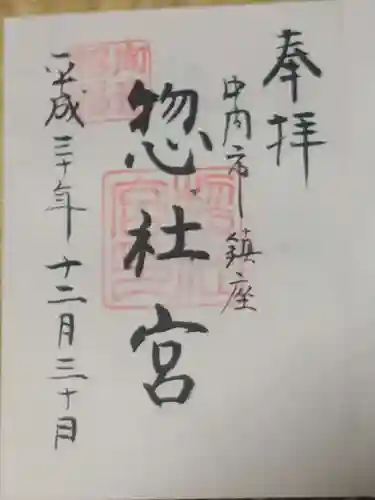 奉拝
府内市鎮座
惣社宮
平成三十年十二月三十日